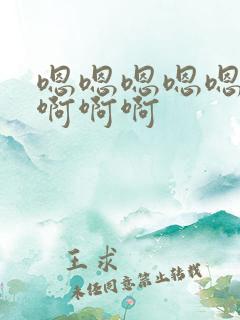 嗯嗯嗯嗯嗯
啊啊啊
王求
未经同意禁止转载